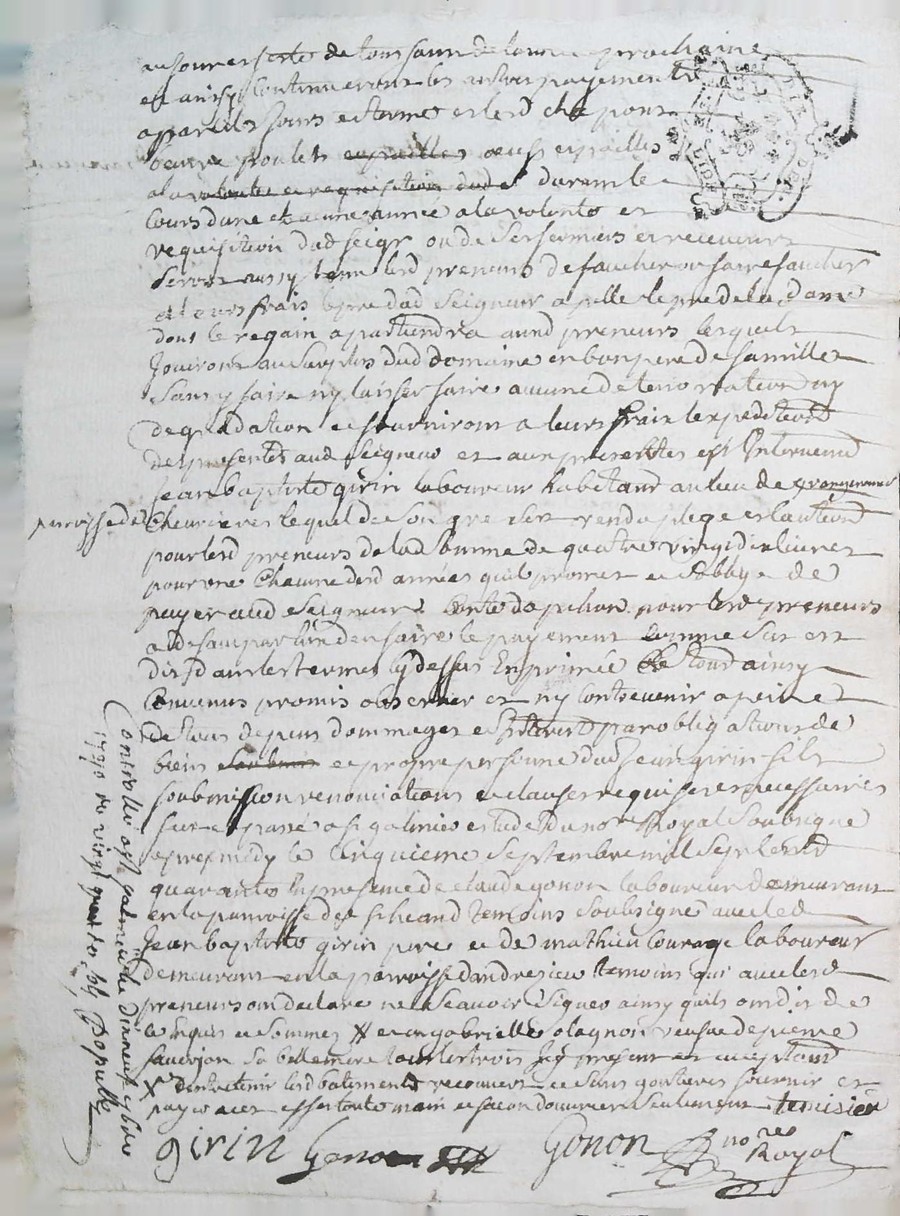 jour et feste de toussaint de lannee prochaine
et ainsy continueront les autres payements
a pareils jours et termes et lesd chapons
beurre poulets œufs et pailles
a la volonte et requisition dud sr durant le
cours dune chacune année a la volonte et
requisition dud seigr ou de ses fermiers et receveurs
seront aussy tenu lesd preneurs de faucher ou faire faucher
a leurs frais le pre dud seigneur apelle le pre de la dame
dont le regain apartiendra auxd preneurs lesquels
jouiront au surplus dud domaine en bon pere de famille
sans y faire ny laisser faire aucune deterioration ny
degradation et fourniront a leurs frais lexpedition
des presentes aud seigneur et aux presentes est intervenu
jean baptiste girin laboureur habitant au lieu de
paroisse de Chevrieres lequel de son gre sest rendu plege et caution
pour lesd preneurs de lad somme de quatre vingt dix livres
pour une chacune desd années quil promet et soblige de
payer aud seigneur conte dapchon pour lesd preneurs
a deffaut par eux den faire le payement comme sus est
dit dans les termes cy dessus exprimés le tout ainsy
convenus promis observer et ny contrevenir a peine
de tous depens dommages et interests par obligations de
biens et propre personne dud jean girin fils
soubmission renonciations et clauses requises et necessaires
fait et passé a st galmier estude du nore Royal soubsigne
apres midy le cinquieme septembre mil sept cent
quarante en presence de claude gonon laboureur demeurant
en la parroisse de temoins soubsigne avec led
jean baptiste girin pere et de mathieu courage laboureur
demeurant en la parroisse dandresieu temoins qui avec lesd
preneurs ont declare ne sçavoir signer ainsy quils ont dit de
ce enquis et sommes X et gabrielle olagnon veufve de pierre
faverjon sa bellemere tous les trois icy present et acceptant
X dentretenir lesd batiments recouvert et sans goutieres fournir et
payer a cet effet toute main et facon douvrier seulement
girin Gonon Royal
nore
Controllé a st galmier le dixneuf 7bre
1740 Ro vingt quatre